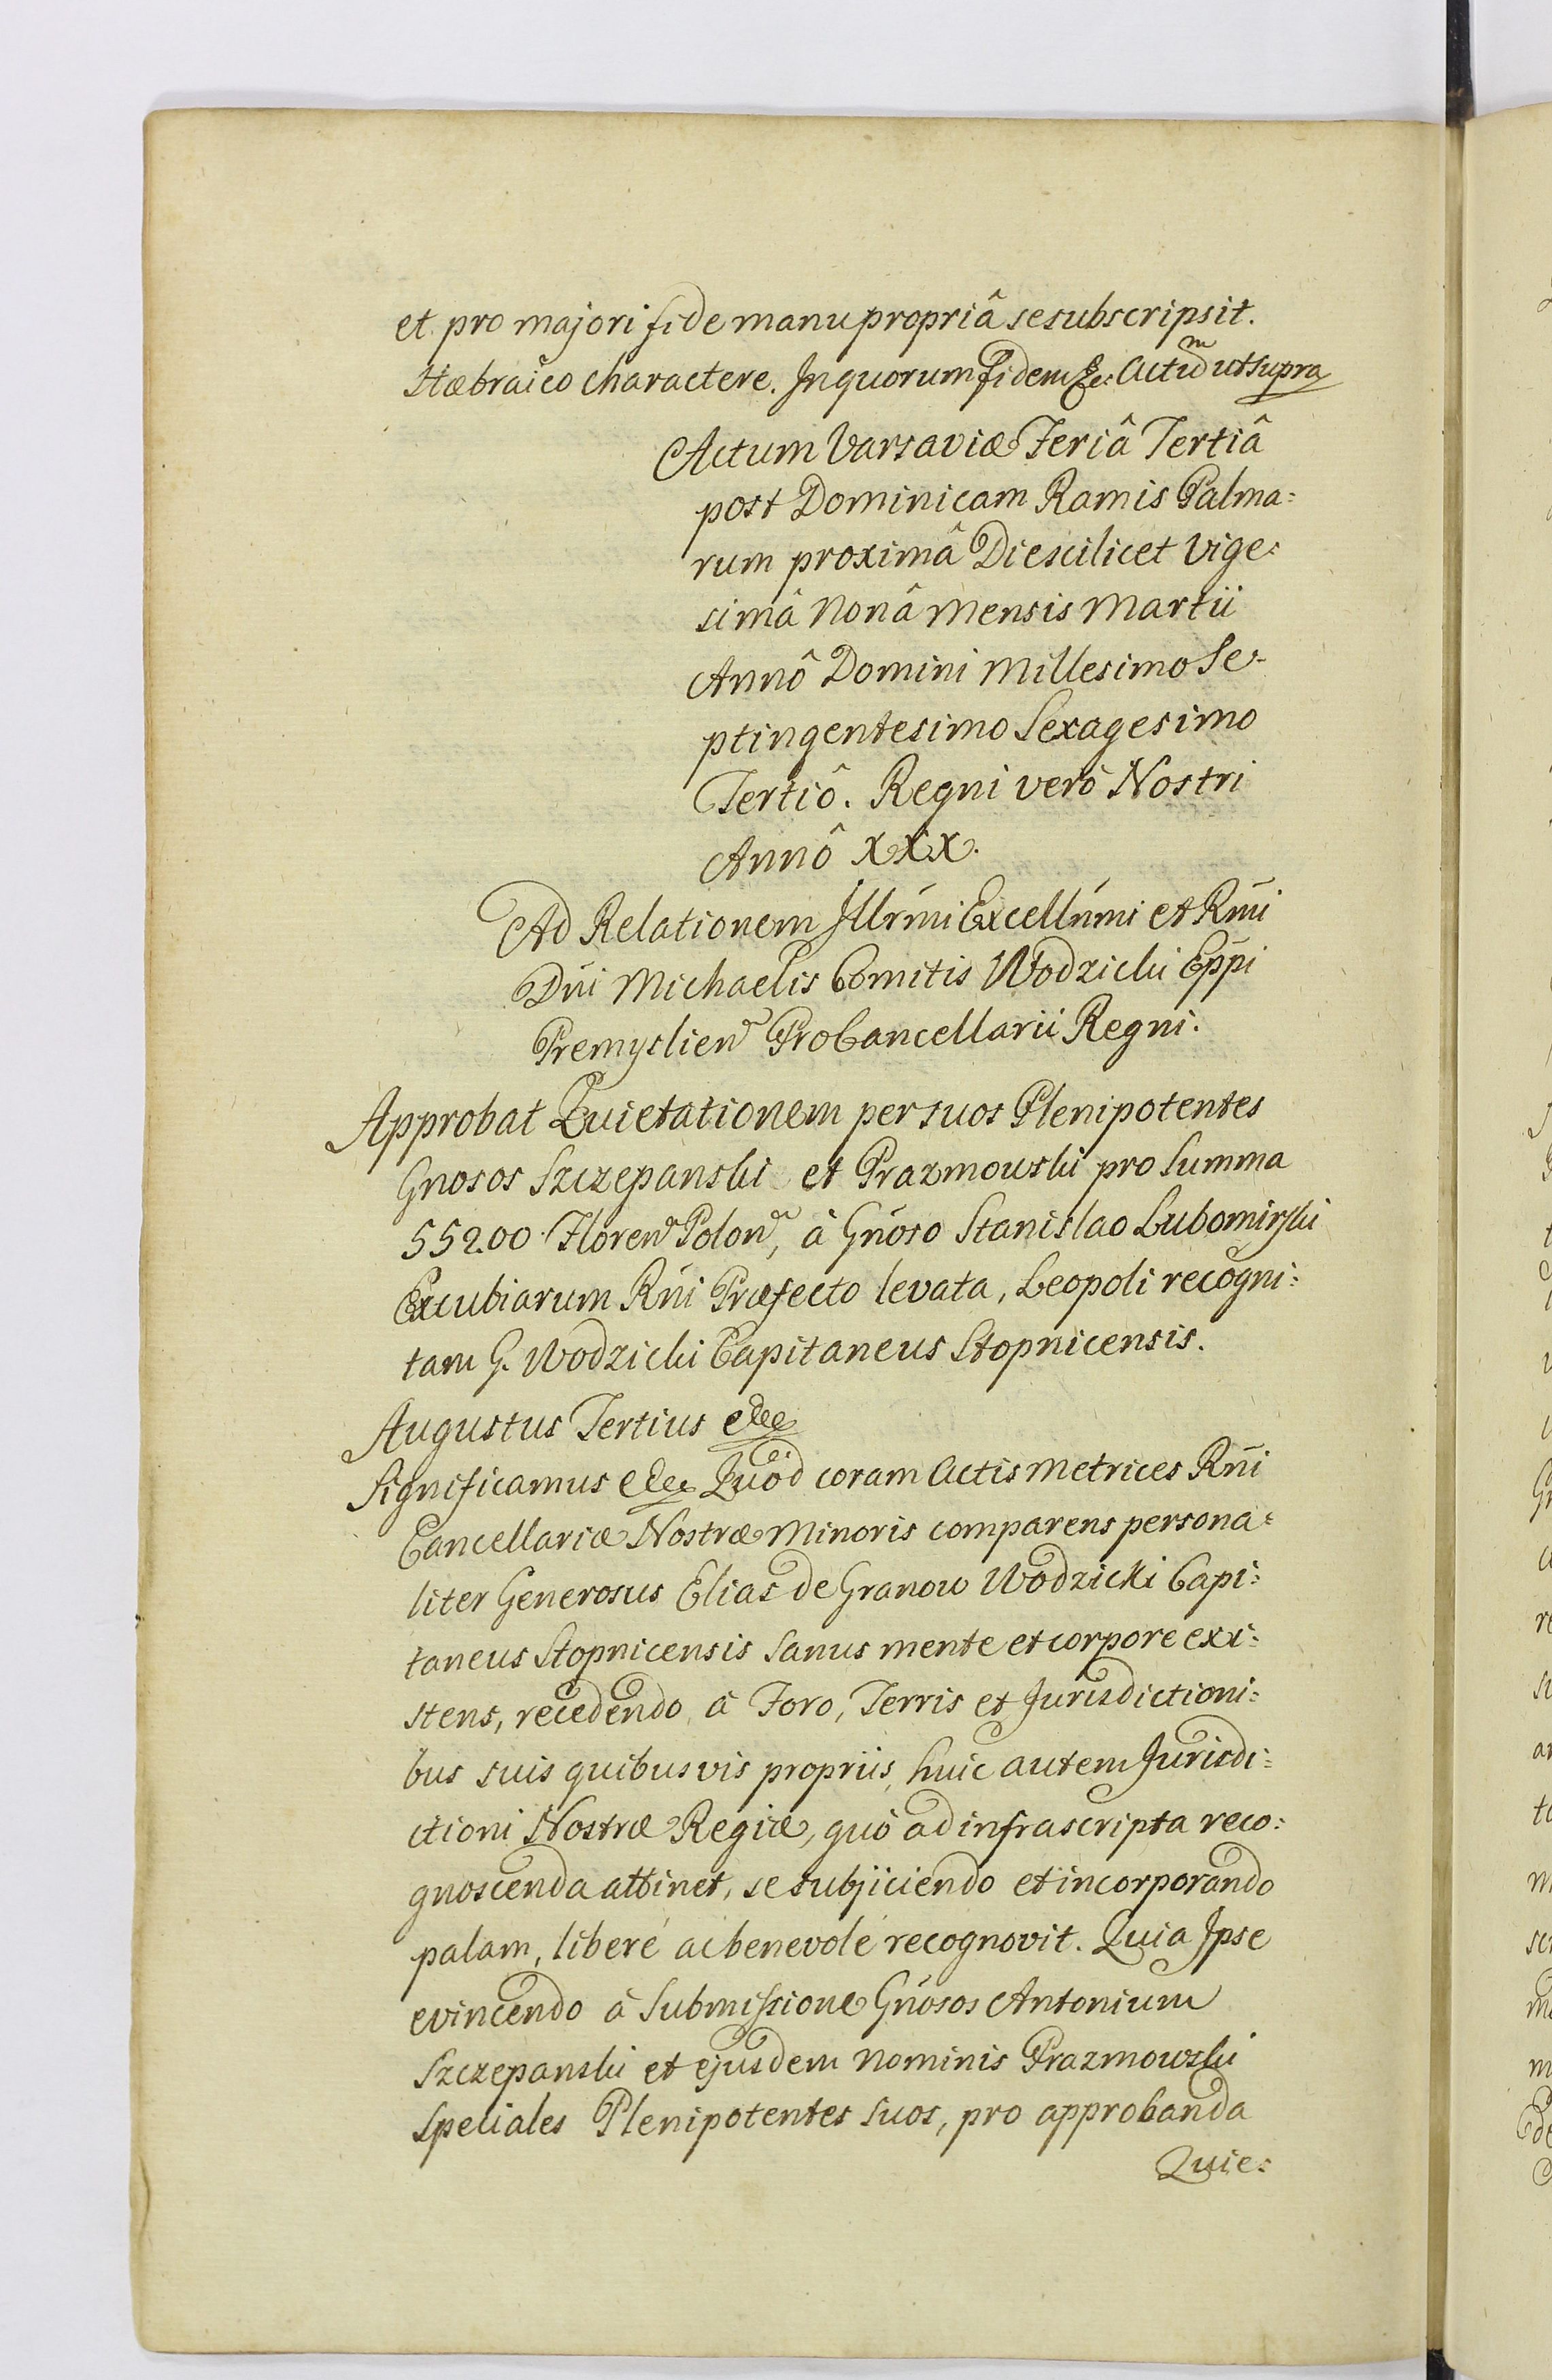 et pro majori fide manu propriâ se subscripsit.
Hæbraico charactere. In quorum fidem &c. Actum ut supra
Actum Varsaviæ Feriâ Tertiâ
post Dominicam Ramis Palma:
rum proximâ Die scilicet Vige:
simâ Nonâ Mensis Martii
Annô Domini Millesimo Se-
ptingentesimo Sexagesimo
Tertiô. Regni verô Nostri
Annô XXX.
Ad Relationem Illrm̄i Excelln̄mi et Rm̄i
Dn̄i Michaelis Comitis Wodzicki Epp̄i
Premyslien ProCancellarii Regni.
Approbat Quietationem per suos Plenipotentes
Gnosos Szczepanski et Prazmowski pro Summa
55200 Floren Polon, à Gn̄oso Stanislao Lubomirski
Excubiarum Rn̄i Præfecto levata, Leopoli recogni:
tam G. Wodzicki Capitaneus Stopnicensis.
Augustus Tertius etc
Significamus etc Quòd coram Actis Metrices Rn̄i
Cancellariæ Nostræ Minoris comparens persona:
liter Generosus Elias de Granow Wodzicki Capi:
taneus Stopnicensis sanus mente et corpore exi:
stens, recedendo à Foro, Terris et Jurisdictioni:
bus suis quibusvis propriis, huic autem Jurisdi:
ctioni Nostræ Regiæ, quò ad infrascripta reco:
gnoscenda attinet, se subjiciendo et incorporando
palam, liberè ac benevolè recognovit. Quia Ipse
evincendo à Submissione Gn̄osos Antonium
Szczepanski et ejusdem nominis Prazmowski
Speciales Plenipotentes suos, pro approbanda
Quie: